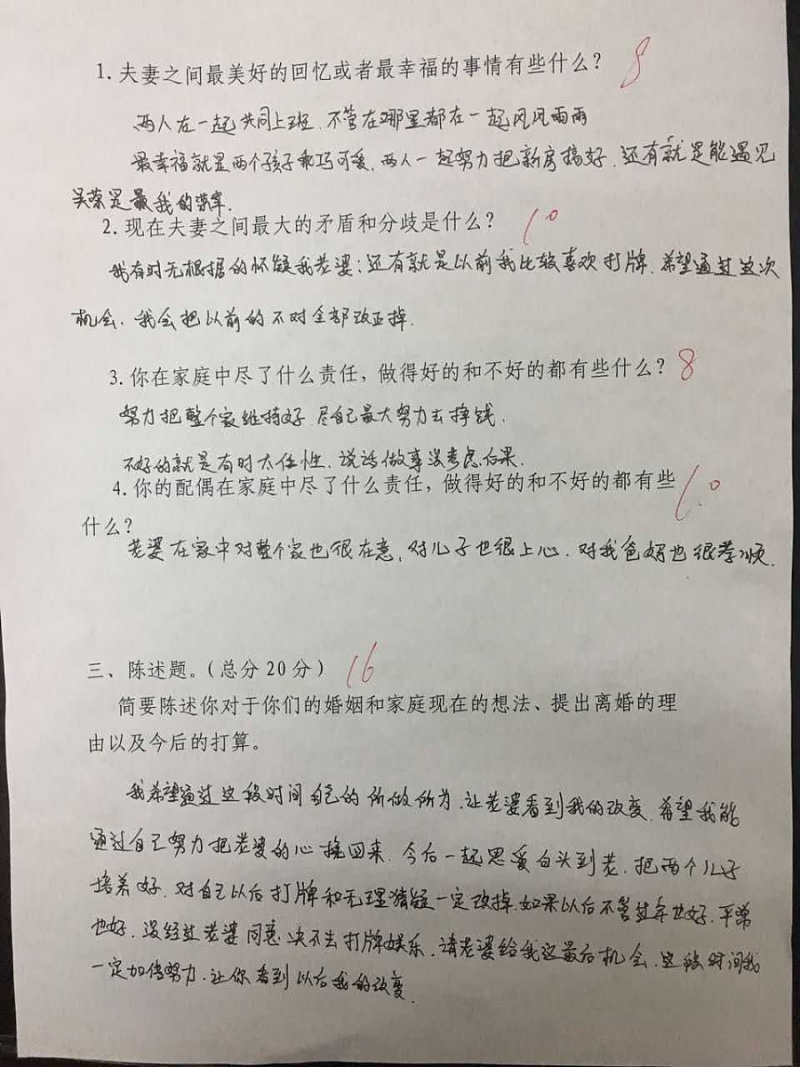 1. 夫妻之间最美好的回忆或者最幸福的事情有些什么？ 8
两人在一起共同上班，不管在哪里都在一起风风雨雨
最幸福就是两个孩子乖巧可爱，两人一起努力把新房搞好，还有就是能遇见
吴荣是最我的荣幸.
2. 现在夫妻之间最大的矛盾和分歧是什么？ 10
我有时无根据的怀疑我老婆；还有就是以前我比较喜欢打牌.希望通过这次
机会.我会把以前的不对全部改正掉.
3. 你在家庭中尽了什么责任，做得好的和不好的都有些什么？ 8
努力把整个家维持好 尽自己最大努力去挣钱.
不好的就是有时太任性，说话做事没考虑后果.
4. 你的配偶在家庭中尽了什么责任，做得好的和不好的都有些 10
什么？
老婆在家中对整个家也很在意，对儿子也很上心.对我爸妈也很孝顺.
三、陈述题。（总分 20 分） 16
简要陈述你对于你们的婚姻和家庭现在的想法、提出离婚的理
由以及今后的打算。
我希望通过这段时间自己的所做所为.让老婆看到我的改变.希望我能
通过自己努力把老婆的心挽回来.今后一起恩爱白头到老.把两个儿子
培养好.对自己以后打牌和无理猜疑一定改掉.如果以后不管过年也好.平常
也好.没经过老婆同意决不去打牌娱乐.请老婆给我这最后机会.这段时间我
一定加倍努力.让你看到以后我的改变.